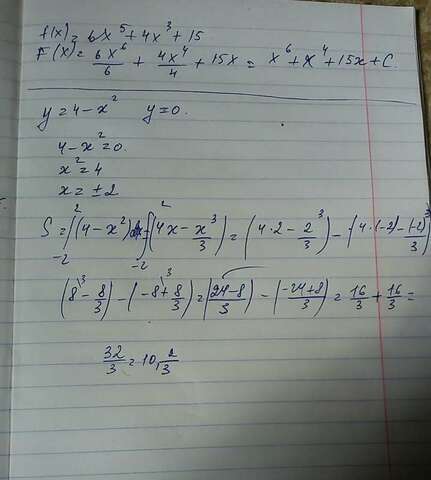 f(x) = 6x⁵ + 4x³ + 15
F(x) = 6x⁶/6 + 4x⁴/4 + 15x = x⁶ + x⁴ + 15x + C
y = 4 - x² y = 0.
4 - x² = 0
x² = 4
x = ±2
S = ∫₋₂² (4 - x²) dx = ∫₋₂² (4x - x³/3) = (4·2 - 2³/3) - (4·(-2) - (-2)³/3)
(8\³ - 8/3) - (-8\³ + 8/3) = (24-8/3) - (-24+8/3) = 16/3 + 16/3 =
32/3 = 10, 2/3